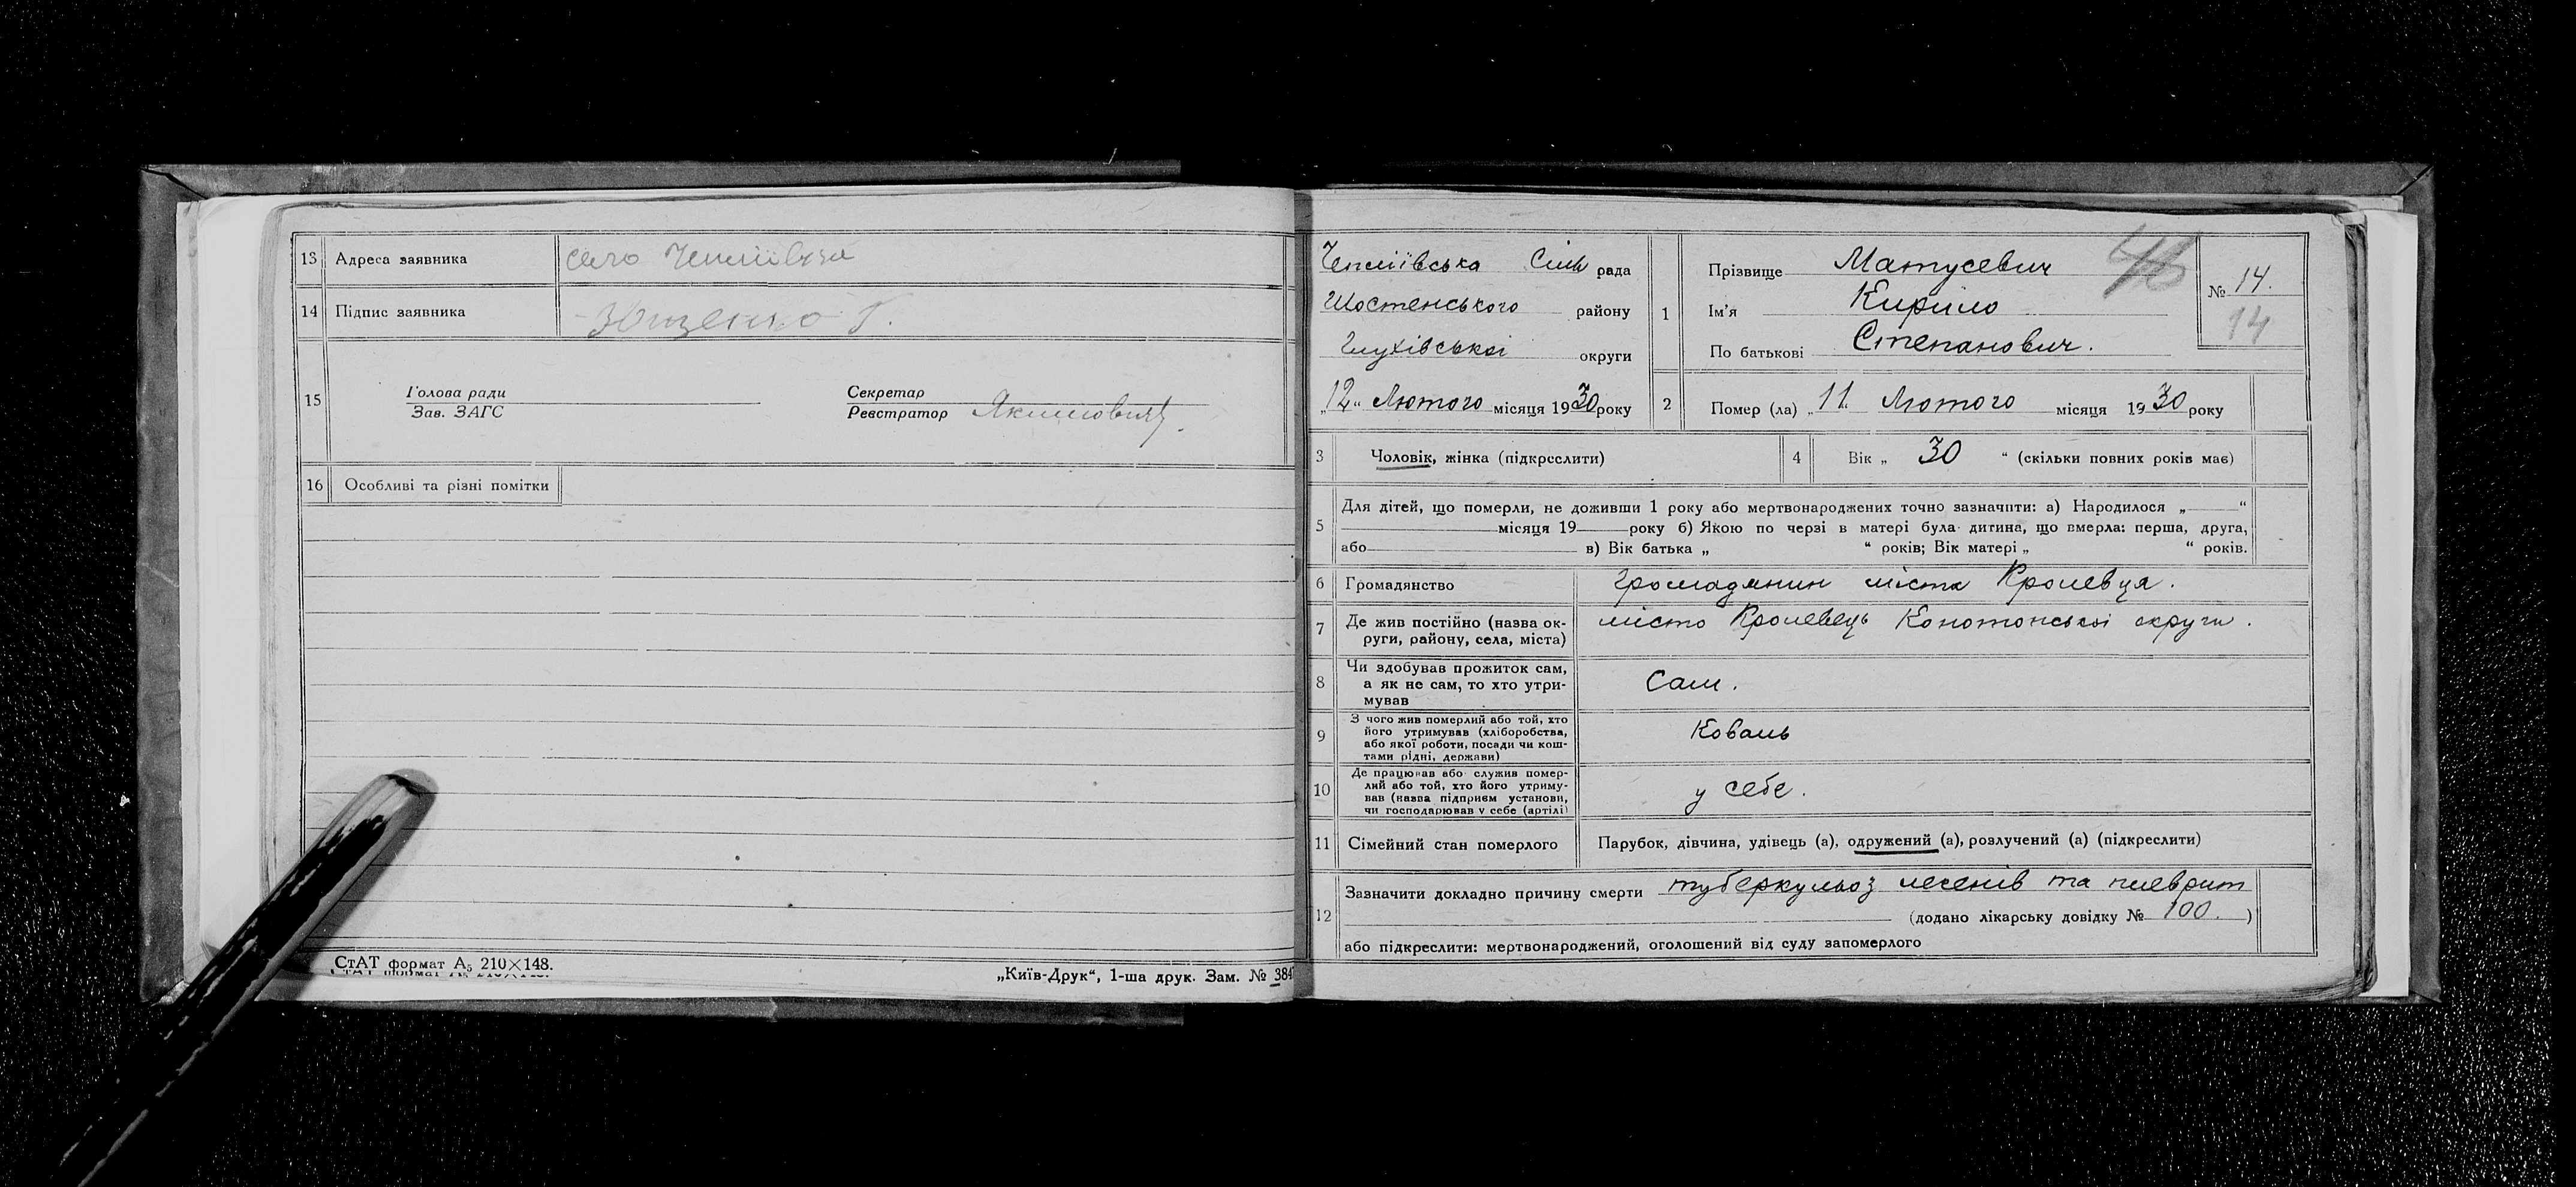 13 Адреса заявника село Чепліївка
14 Підпис заявника Ющенко Г.
15 Голова ради
Зав. ЗАГС
Секретар
Реєстратор Якимович
16 Особливі та різні помітки
СтАТ формат А5 210×148.
„Київ-Друк“, 1-ша друк. Зам. № 384
Чепліївська Сіль рада
Шостенського району
Глухівської округи
„12“ Лютого місяця 1930 року
1 Прізвище Матусевич
Ім'я Кирило
По батькові Степанович.
46
№ 14.
14
2 Помер (ла) „11“ Лютого місяця 1930 року
3 Чоловік, жінка (підкреслити)
4 Вік „ 30 “ (скільки повних років має)
5 Для дітей, що померли, не доживши 1 року або мертвонароджених точно зазначити: а) Народилося „ “
місяця 19 року б) Якою по черзі в матері була дитина, що вмерла: перша, друга,
або в) Вік батька „ “ років; Вік матері „ “ років.
6 Громадянство громадянин міста Кролевця.
7 Де жив постійно (назва ок-
руги, району, села, міста) місто Кролевець Конотопської округи.
8 Чи здобував прожиток сам,
а як не сам, то хто утри-
мував Сам.
9 З чого жив померлий або той, хто
його утримував (хліборобства,
або якої роботи, посади чи кош-
тами рідні, держави) Коваль
10 Де працював або служив помер-
лий або той, хто його утриму-
вав (назва підприєм установи,
чи господарював у себе (артілі) у себе.
11 Сімейний стан померлого Парубок, дівчина, удівець (а), одружений (а), розлучений (а) (підкреслити)
12 Зазначити докладно причину смерти туберкульоз легенів та плеврит
(додано лікарську довідку № 100. )
або підкреслити: мертвонароджений, оголошений від суду запомерлого